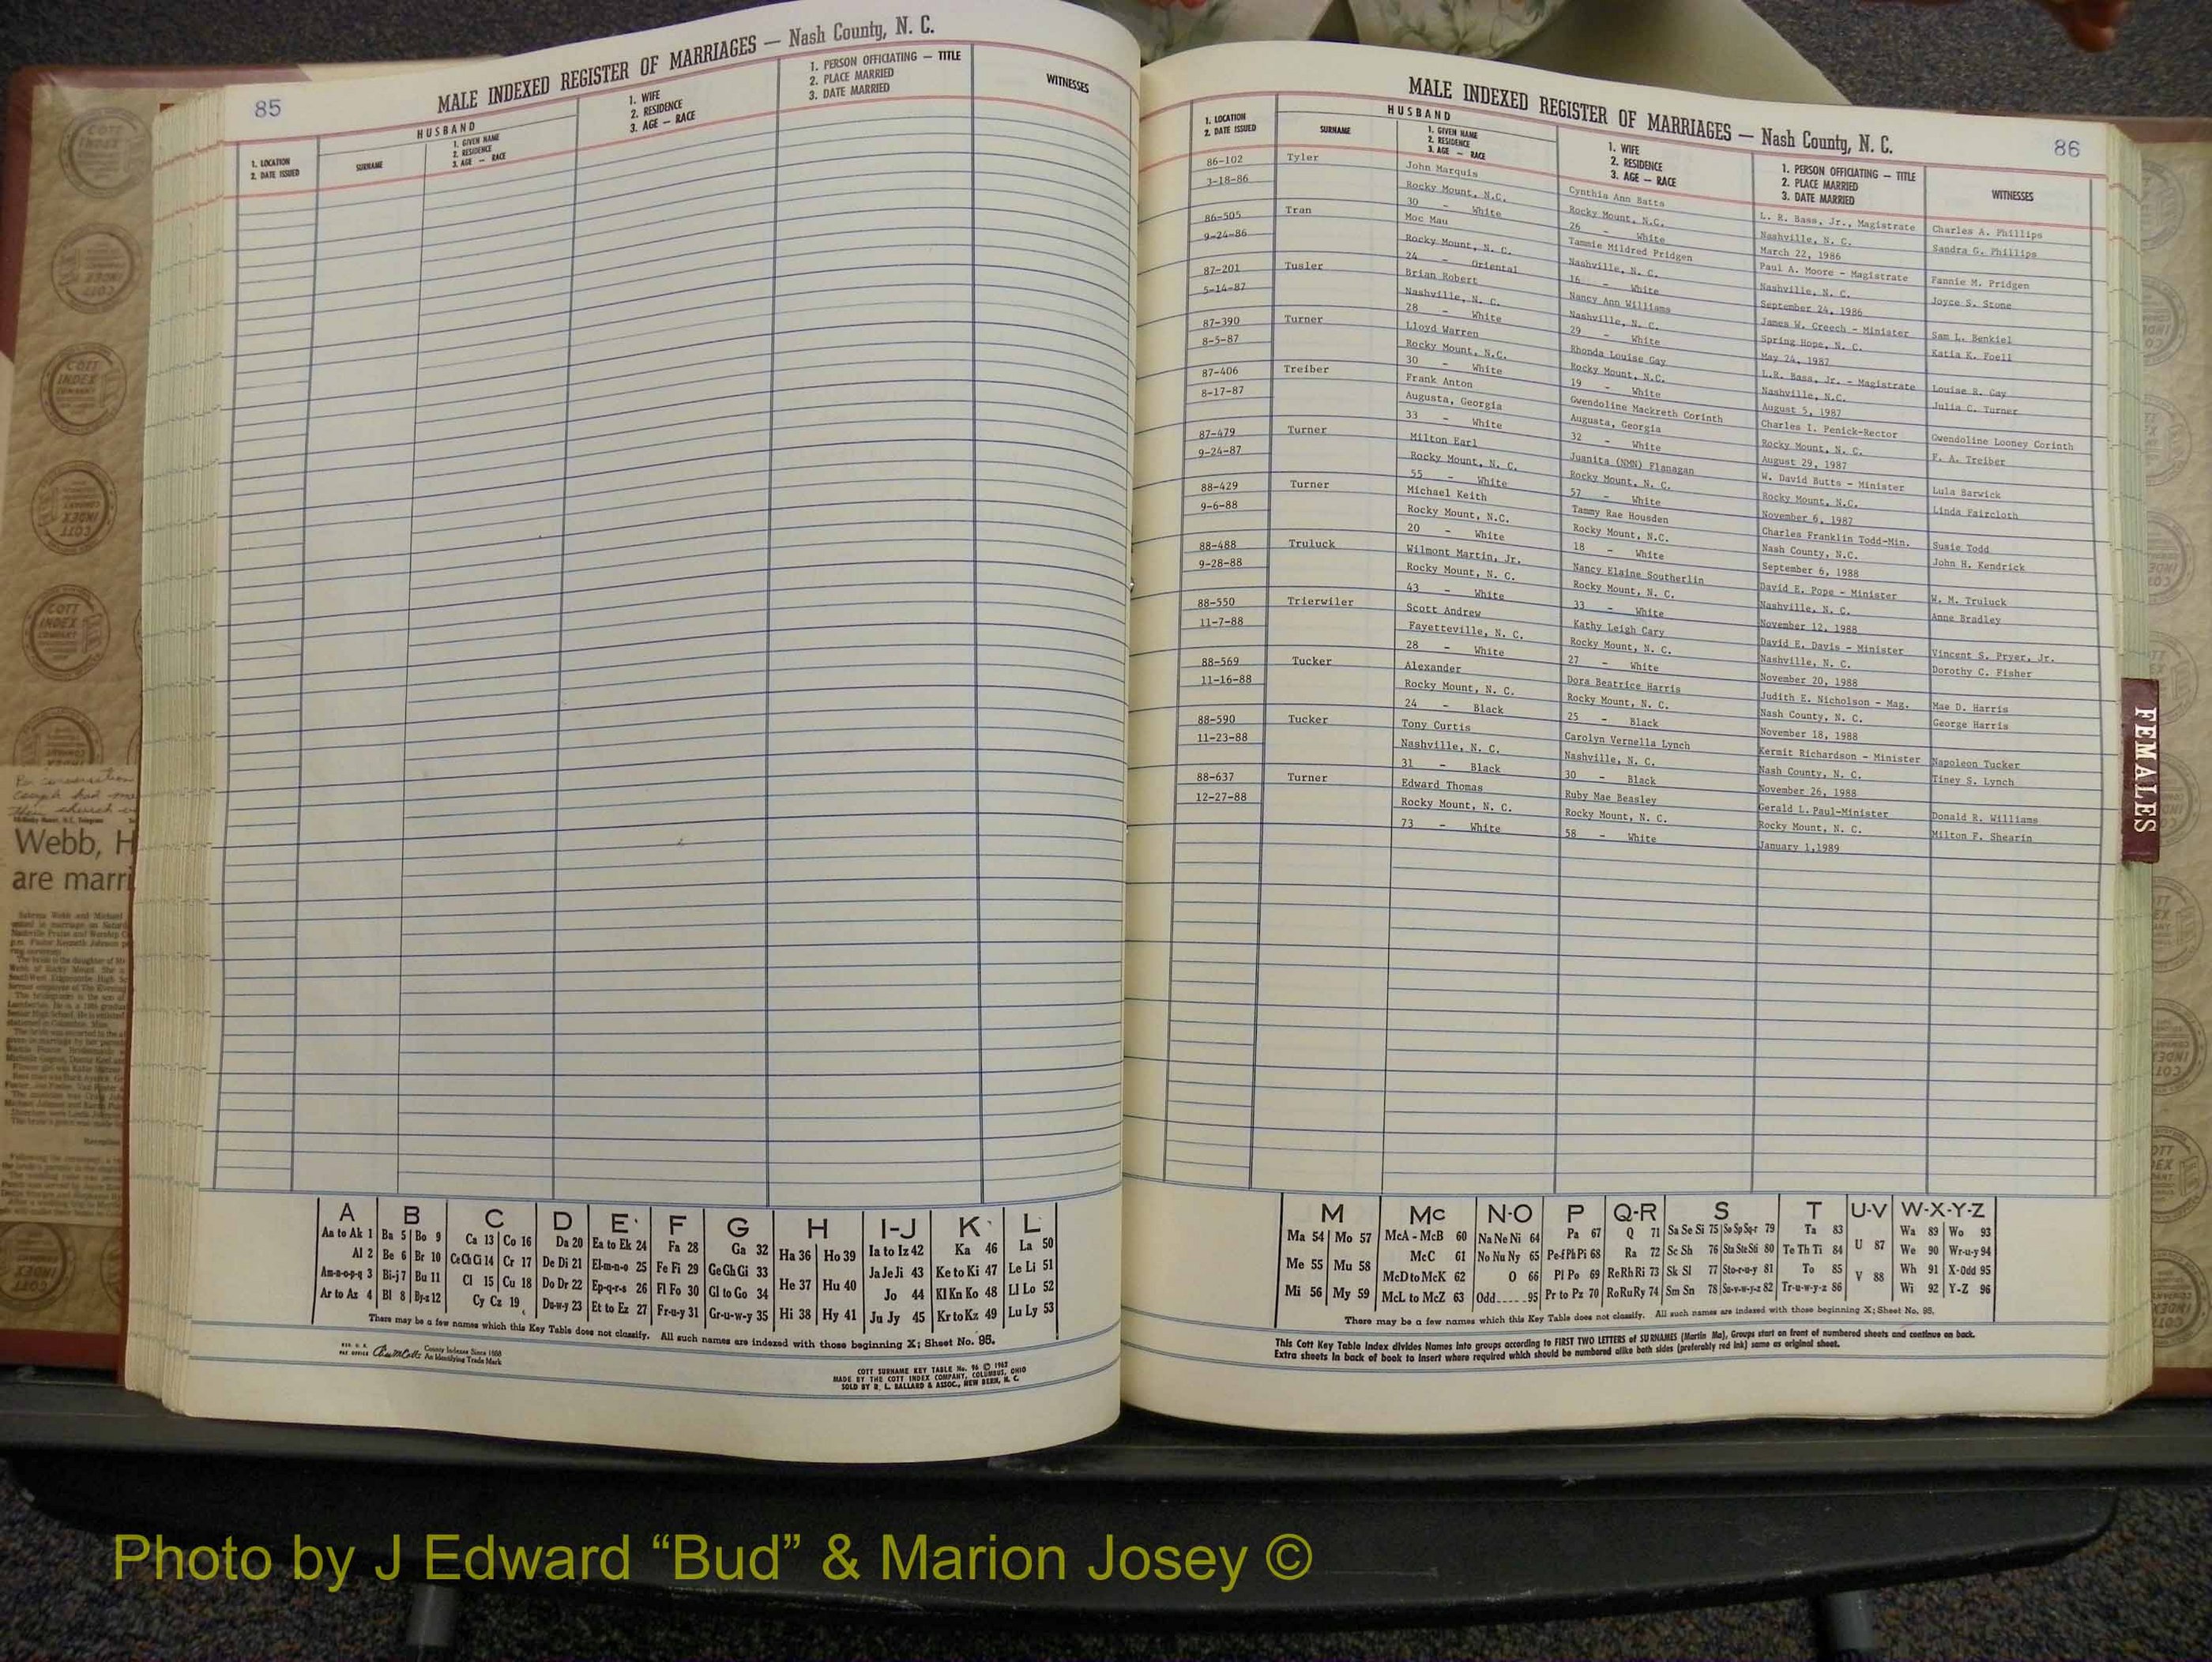 85
MALE INDEXED REGISTER OF MARRIAGES — Nash County, N. C.
1. LOCATION
2. DATE ISSUED
HUSBAND
SURNAME
1. GIVEN NAME
2. RESIDENCE
3. AGE — RACE
1. WIFE
2. RESIDENCE
3. AGE — RACE
1. PERSON OFFICIATING — TITLE
2. PLACE MARRIED
3. DATE MARRIED
WITNESSES
A B C D E F G H I-J K L
Aa to Ak 1 Ba 5 Bo 9 Ca 13 Co 16 Da 20 Ea to Ek 24 Fa 28 Ga 32 Ha 36 Ho 39 Ia to Iz 42 Ka 46 La 50
Al 2 Be 6 Br 10 Ce Ch Ci 14 Cr 17 De Di 21 El-m-n-o 25 Fe Fi 29 Ge Gh Gi 33 Ja Je Ji 43 Ke to Ki 47 Le Li 51
Am-n-o-p-q 3 Bi-j 7 Bu 11 Cl 15 Cu 18 Do Dr 22 Ep-q-r-s 26 Fl Fo 30 Gl to Go 34 He 37 Hu 40 Jo 44 Kl Kn Ko 48 Ll Lo 52
Ar to Az 4 Bl 8 By-z 12 Cy Cz 19 Du-w-y 23 Et to Ez 27 Fr-u-y 31 Gr-u-w-y 35 Hi 38 Hy 41 Ju Jy 45 Kr to Kz 49 Lu Ly 53
There may be a few names which this Key Table does not classify. All such names are indexed with those beginning X; Sheet No. 95.
County Indexes Since 1888
An Identifying Trade Mark
COTT SURNAME KEY TABLE No. 96 © 1962
MADE BY THE COTT INDEX COMPANY, COLUMBUS, OHIO
SOLD BY R. L. BALLARD & ASSOC., NEW BERN, N. C.
86
MALE INDEXED REGISTER OF MARRIAGES — Nash County, N. C.
1. LOCATION
2. DATE ISSUED
HUSBAND
SURNAME
1. GIVEN NAME
2. RESIDENCE
3. AGE — RACE
1. WIFE
2. RESIDENCE
3. AGE — RACE
1. PERSON OFFICIATING — TITLE
2. PLACE MARRIED
3. DATE MARRIED
WITNESSES
86-102 Tyler John Marquis Cynthia Ann Batts L. R. Bass, Jr., Magistrate Charles A. Phillips
3-18-86 Rocky Mount, N.C. Rocky Mount, N.C. Nashville, N. C. Sandra G. Phillips
30 - White 26 - White March 22, 1986
86-505 Tran Moc Mau Tammie Mildred Pridgen Paul A. Moore - Magistrate Fannie M. Pridgen
9-24-86 Rocky Mount, N. C. Nashville, N. C. Nashville, N. C. Joyce S. Stone
24 - Oriental 16 - White September 24, 1986
87-201 Tusler Brian Robert Nancy Ann Williams James W. Creech - Minister Sam L. Benkiel
5-14-87 Nashville, N. C. Nashville, N. C. Spring Hope, N. C. Katia K. Foell
28 - White 29 - White May 24, 1987
87-390 Turner Lloyd Warren Rhonda Louise Gay L.R. Bass, Jr. - Magistrate Louise R. Gay
8-5-87 Rocky Mount, N.C. Rocky Mount, N.C. Nashville, N.C. Julia C. Turner
30 - White 19 - White August 5, 1987
87-406 Treiber Frank Anton Gwendoline Mackreth Corinth Charles I. Penick-Rector Gwendoline Looney Corinth
8-17-87 Augusta, Georgia Augusta, Georgia Rocky Mount, N. C. F. A. Treiber
33 - White 32 - White August 29, 1987
87-479 Turner Milton Earl Juanita (NMN) Flanagan W. David Butts - Minister Lula Barwick
9-24-87 Rocky Mount, N. C. Rocky Mount, N. C. Rocky Mount, N.C. Linda Faircloth
55 - White 57 - White November 6, 1987
88-429 Turner Michael Keith Tammy Rae Housden Charles Franklin Todd-Min. Susie Todd
9-6-88 Rocky Mount, N.C. Rocky Mount, N.C. Nash County, N.C. John H. Kendrick
20 - White 18 - White September 6, 1988
88-488 Truluck Wilmont Martin, Jr. Nancy Elaine Southerlin David E. Pope - Minister W. M. Truluck
9-28-88 Rocky Mount, N. C. Rocky Mount, N. C. Nashville, N. C. Anne Bradley
43 - White 33 - White November 12, 1988
88-550 Trierwiler Scott Andrew Kathy Leigh Cary David E. Davis - Minister Vincent S. Pryer, Jr.
11-7-88 Fayetteville, N. C. Rocky Mount, N. C. Nashville, N. C. Dorothy C. Fisher
28 - White 27 - White November 20, 1988
88-569 Tucker Alexander Dora Beatrice Harris Judith E. Nicholson - Mag. Mae D. Harris
11-16-88 Rocky Mount, N. C. Rocky Mount, N. C. Nash County, N. C. George Harris
24 - Black 25 - Black November 18, 1988
88-590 Tucker Tony Curtis Carolyn Vernella Lynch Kermit Richardson - Minister Napoleon Tucker
11-23-88 Nashville, N. C. Nashville, N. C. Nash County, N. C. Tiney S. Lynch
31 - Black 30 - Black November 26, 1988
88-637 Turner Edward Thomas Ruby Mae Beasley Gerald L. Paul-Minister Donald R. Williams
12-27-88 Rocky Mount, N. C. Rocky Mount, N. C. Rocky Mount, N. C. Milton F. Shearin
73 - White 58 - White January 1,1989
M Mc N-O P Q-R S T U-V W-X-Y-Z
Ma 54 Mo 57 McA - McB 60 Na Ne Ni 64 Pa 67 Q 71 Sa Se Si 75 So Sp Sq-r 79 Ta 83 U 87 Wa 89 Wo 93
Me 55 Mu 58 McC 61 No Nu Ny 65 Pe-f Ph Pi 68 Ra 72 Sc Sh 76 Sta Ste Sti 80 Te Th Ti 84 We 90 Wr-u-y 94
McD to McK 62 O 66 Pl Po 69 Re Rh Ri 73 Sk Sl 77 Sto-r-u-y 81 To 85 V 88 Wh 91 X-Odd 95
Mi 56 My 59 McL to McZ 63 Odd 95 Pr to Pz 70 Ro Ru Ry 74 Sm Sn 78 Su-v-w-y-z 82 Tr-u-w-y-z 86 Wi 92 Y-Z 96
There may be a few names which this Key Table does not classify. All such names are indexed with those beginning X; Sheet No. 95.
This Cott Key Table Index divides Names into groups according to FIRST TWO LETTERS of SURNAMES (Martin Ma), Groups start on front of numbered sheets and continue on back.
Extra sheets in back of book to insert where required which should be numbered alike both sides (preferably red ink) same as original sheet.
FEMALES
COTT
INDEX
COMPANY
Webb, H
are marri
Photo by J Edward “Bud” & Marion Josey ©